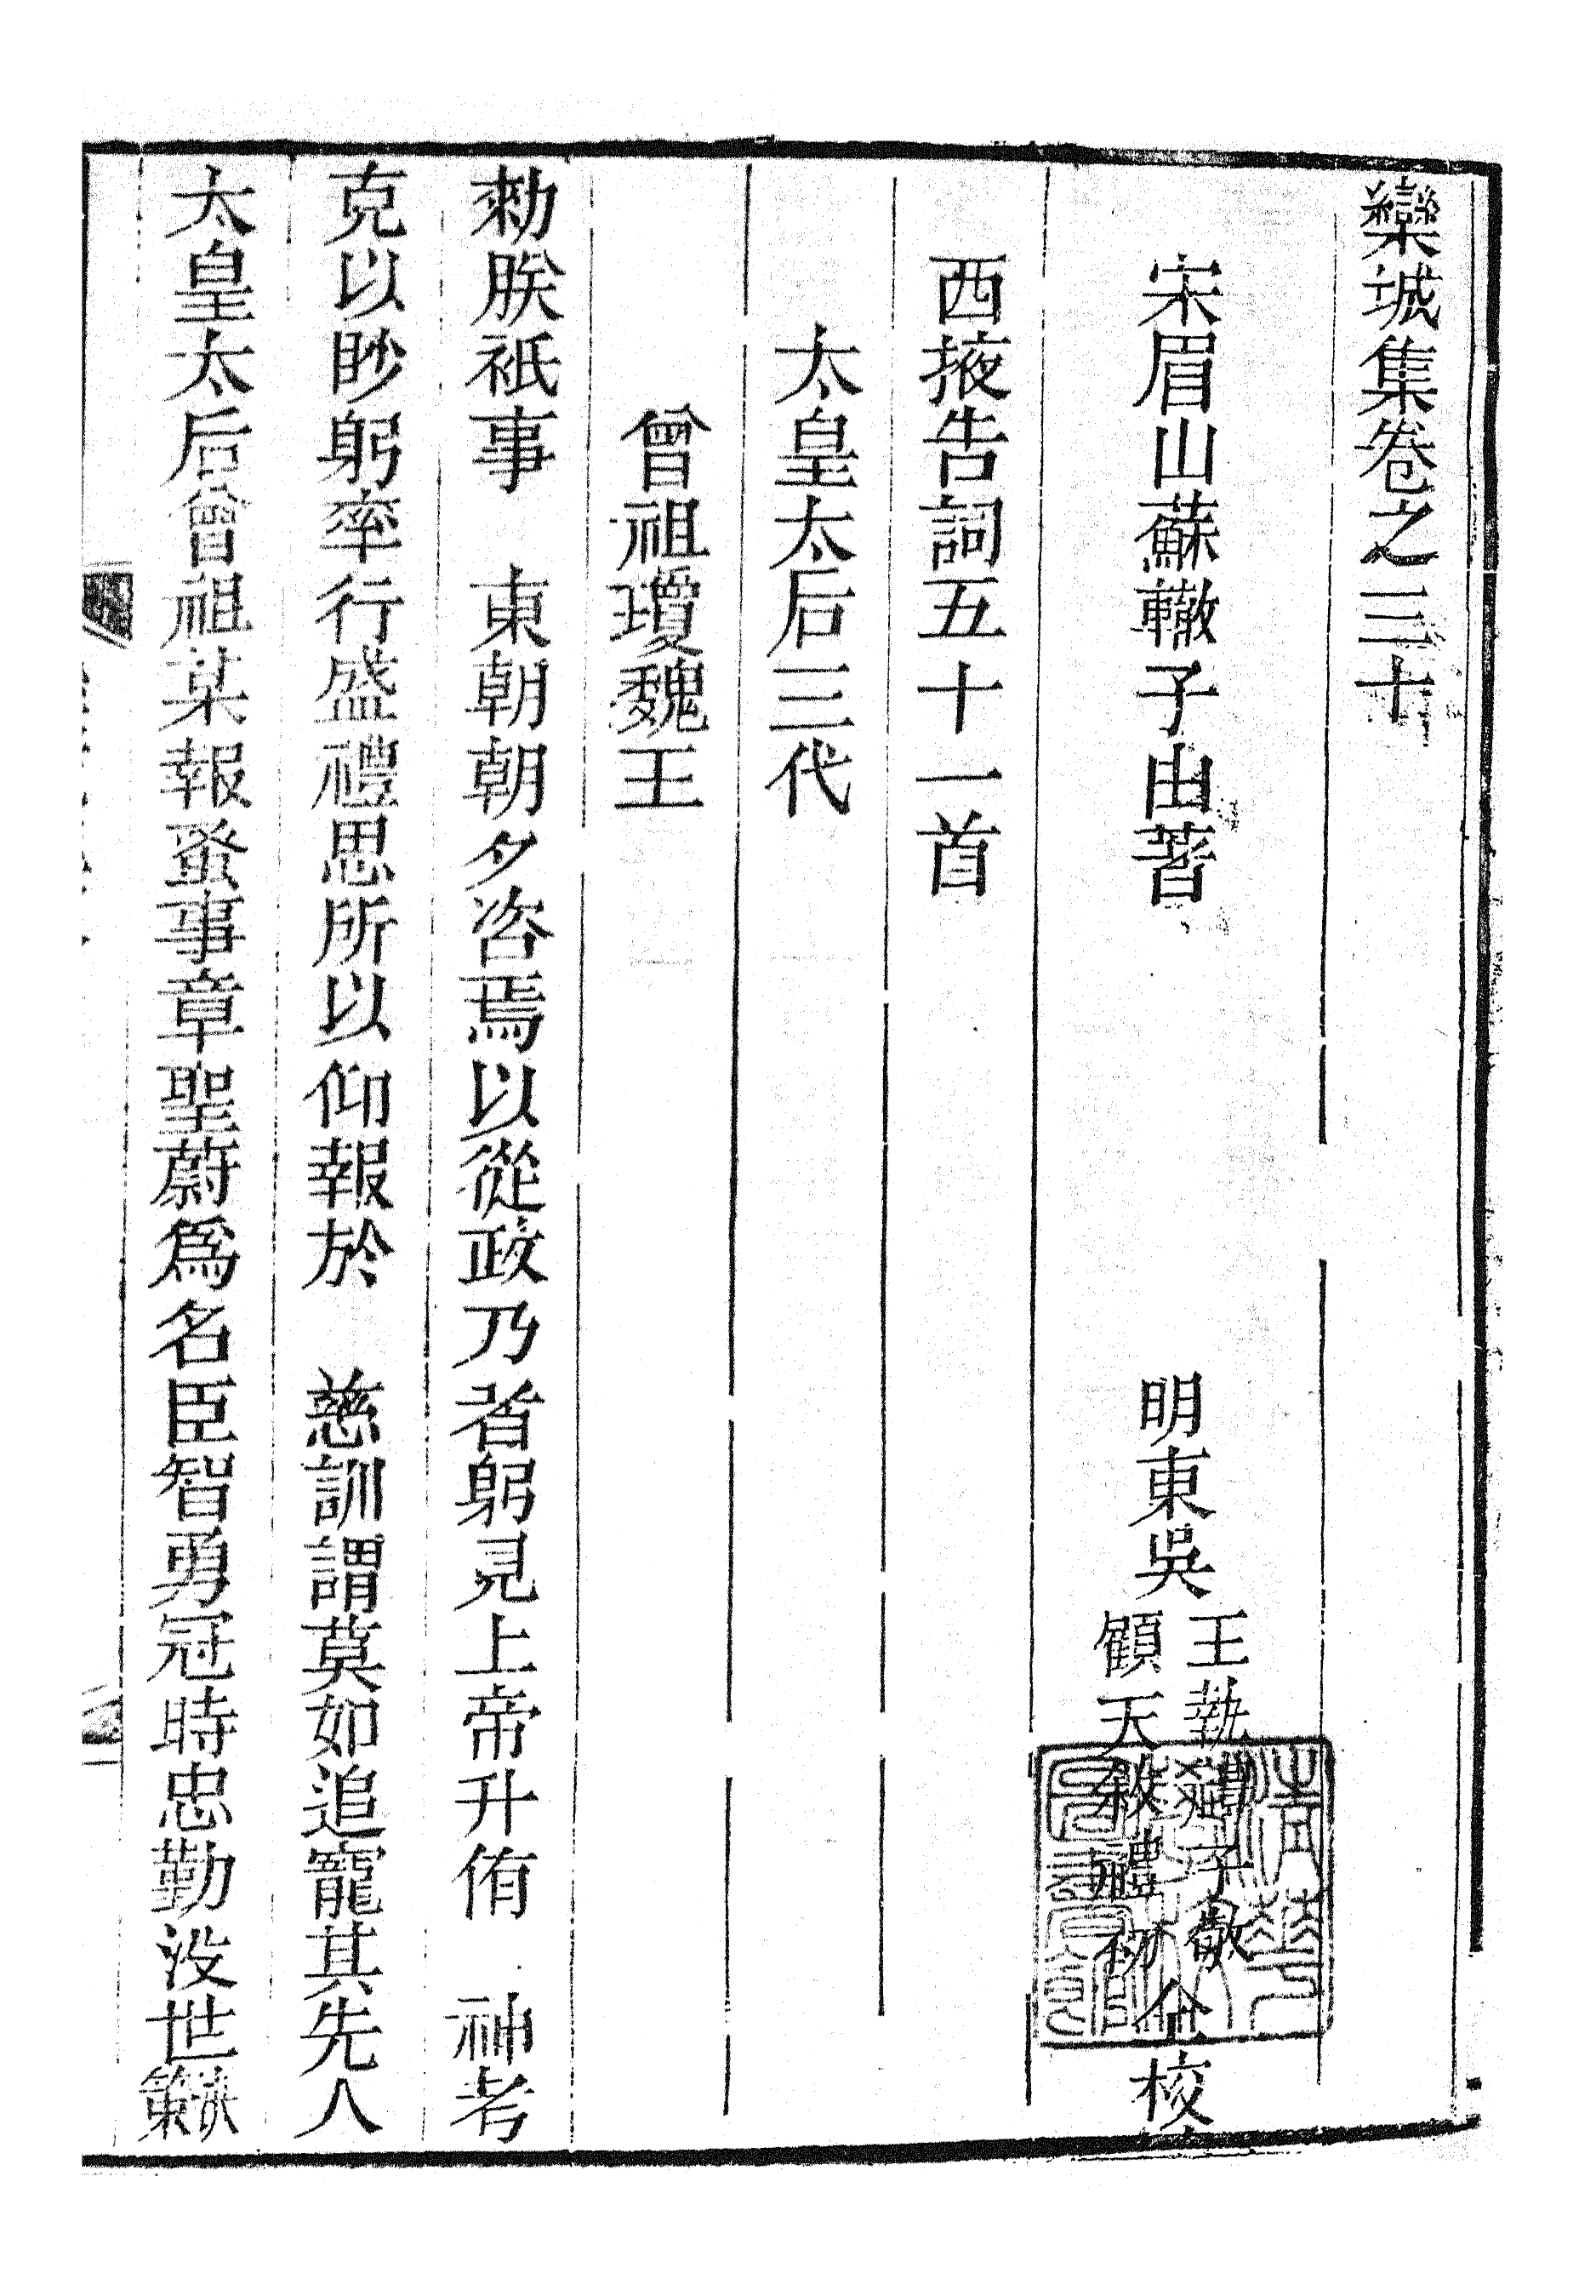 欒城集卷之三十
宋眉山蘇轍子由著
明東吳
王執禮子敬
顧天敘禮初
仝校
西掖告詞五十一首
太皇太后三代
曾祖瓊魏王
勑朕祗事　東朝朝夕咨焉以從政乃者躬見上帝升侑　神考
克以眇躬率行盛禮思所以仰報於　慈訓謂莫如追寵其先人
太皇太后曾祖某報蚤事章聖蔚爲名臣智勇冠時忠勤没世
清華